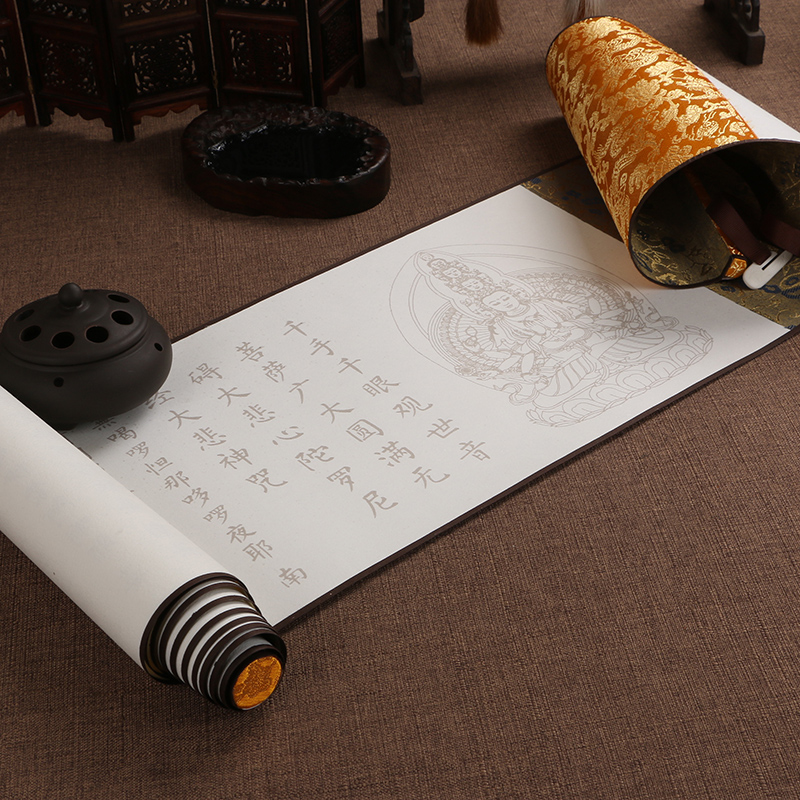 千手千眼观世音
菩萨广大圆满无
碍大悲心陀罗尼
经大悲神咒
喝啰怛那哆啰夜耶 南